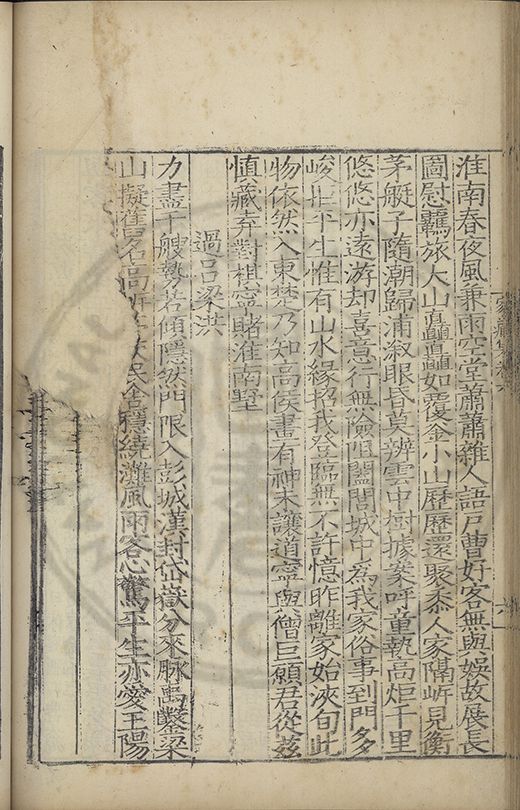 淮南春夜風兼雨空堂蕭蕭雜人語戶曹好客無與娛故展長
圖慰羈旅大山矗矗如覆釜小山歷歷還聚黍人家隔岍見衡
茅艇子隨潮歸浦漵眼昏莫辨雲中樹據案呼童執高炬千里
悠悠亦遠游却喜意行無險阻闔閭城中為我家俗事到門多
峻拒平生惟有山水緣招我登臨無不許憶昨離家始浹旬此
物依然入東楚乃知高侯畫有神未讓道寧與僧巨願君從茲
慎藏弆對棋寧賭淮南墅
過呂梁洪
力盡千艘勢若傾隱然門限入彭城漢封岱嶽分來脉禹鑿梁
山擬舊名高 民全穩繞灘風雨客心驚平生亦愛王陽
家藏集卷六